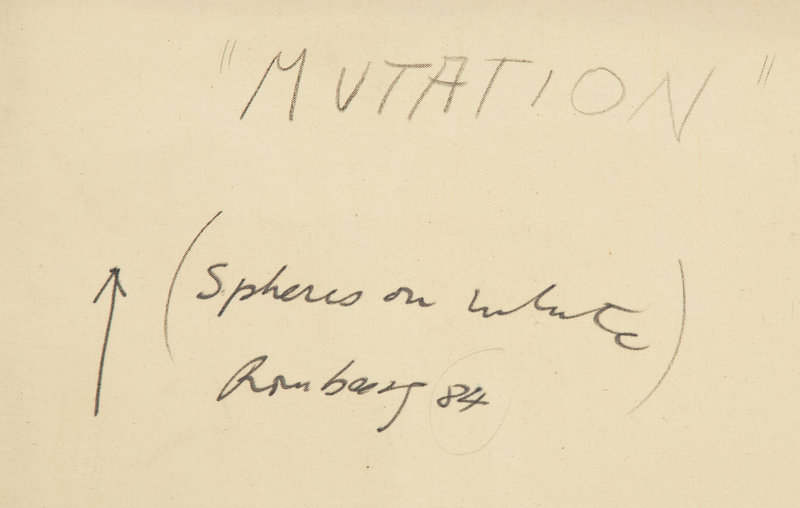 "MUTATION"
(Spheres on white
Romberg 84)